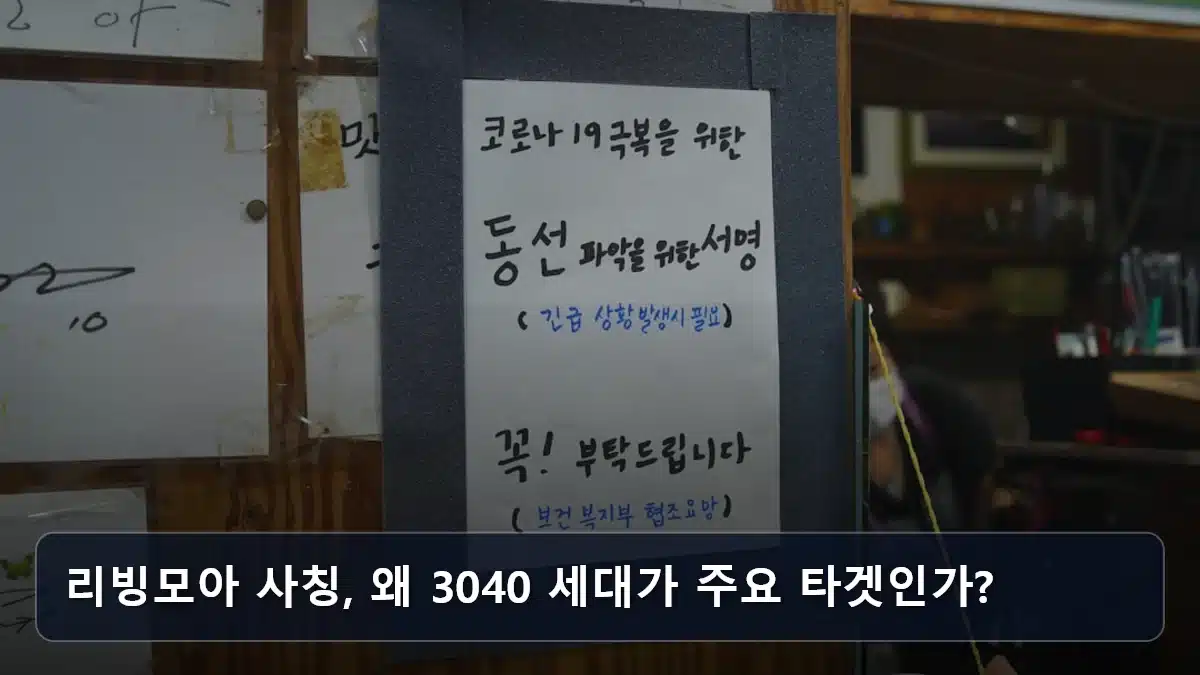 맛
10
코로나 19 극복을 위한
동선 파악을 위한 서명
( 긴급 상황 발생시 필요)
꼭! 부탁드립니다
( 보건복지부 협조요망)
리빙모아 사칭, 왜 3040 세대가 주요 타겟인가?